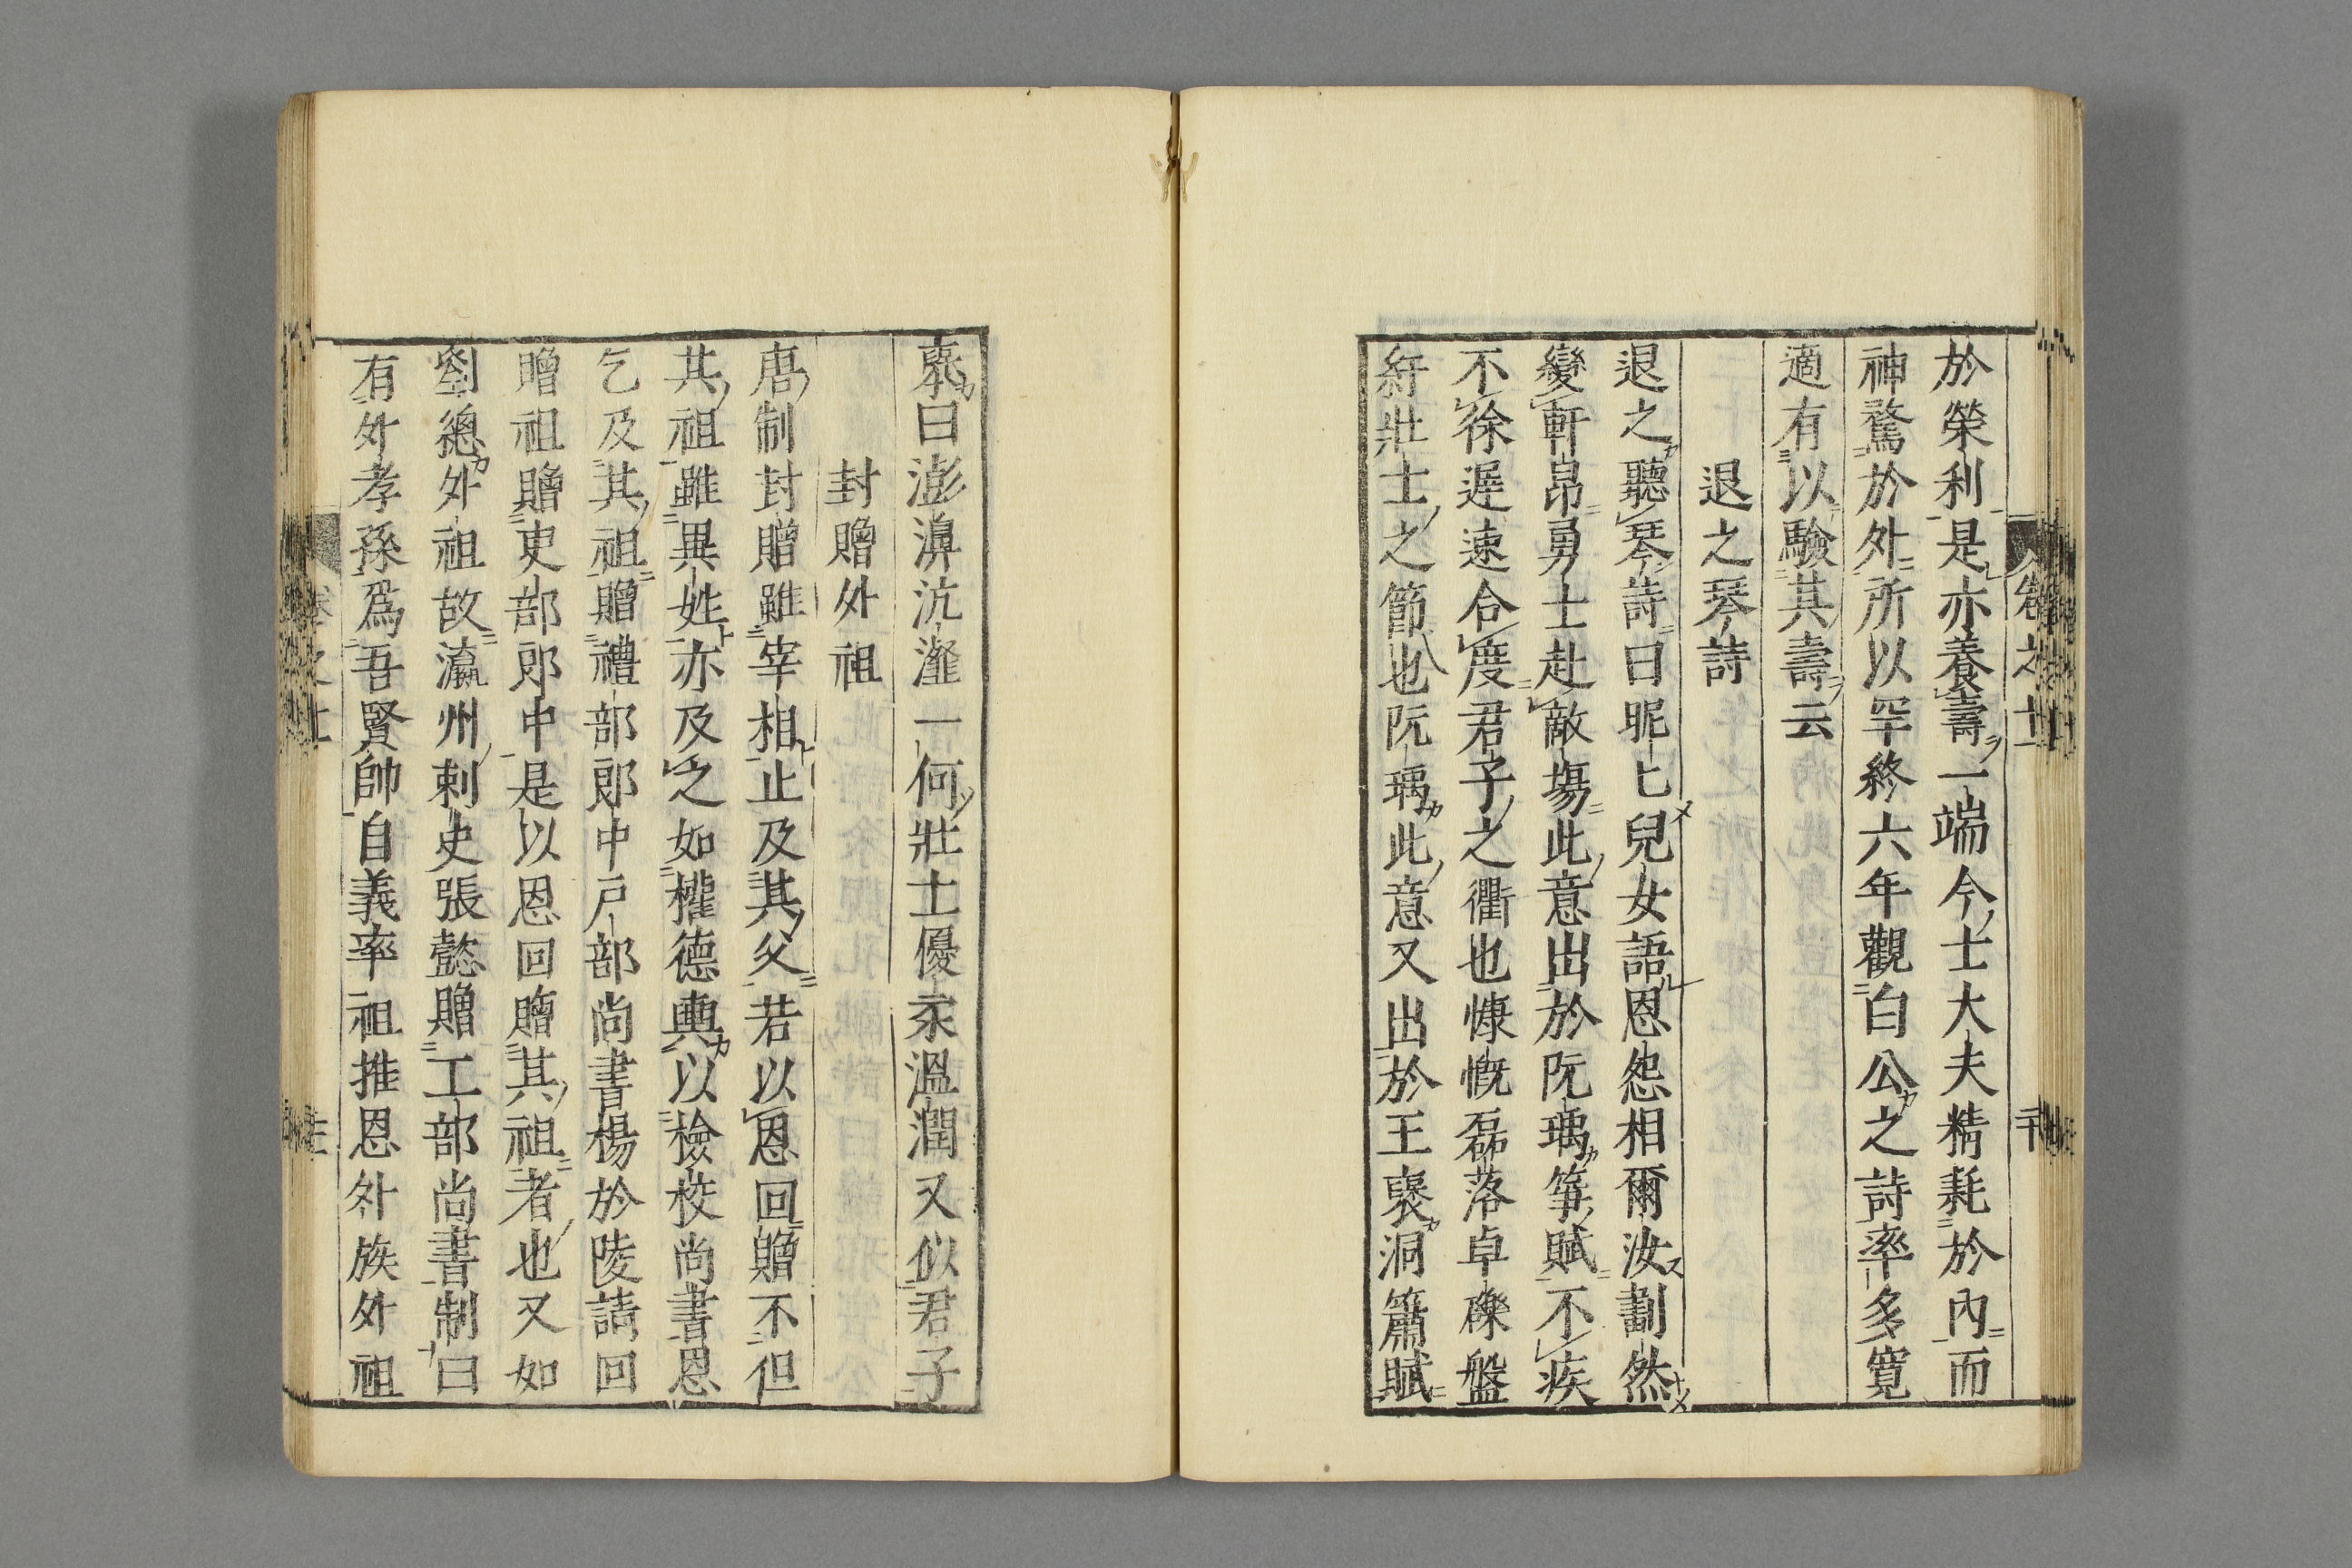 於榮利是亦養壽一端今士大夫精耗於內而
神騖於外所以罕終六年觀白公之詩率多寬
適有以驗其壽云
退之琴詩
退之聽琴詩曰昵匕兒女語恩怨相爾汝劃然
變軒昂勇士赴敵塲此意出於阮瑀箏賦不疾
不徐遲速合度君子之衢也慷慨磊落卓礫盤
紆壯士之節也阮瑀此意又出於王襃洞簫賦
襃曰澎濞沆瀣一何壯士優柔溫潤又似君子
封贈外祖
唐制封贈雖宰相止及其父若以恩回贈不但
其祖雖異姓亦及之如權德輿以檢校尚書恩
乞及其祖贈禮部郎中戶部尚書楊於陵請回
贈祖贈吏部郎中是以恩回贈其祖者也又如
劉總外祖故瀛州刺史張懿贈工部尚書制曰
有外孝孫爲吾賢帥自義率祖推恩外族外祖